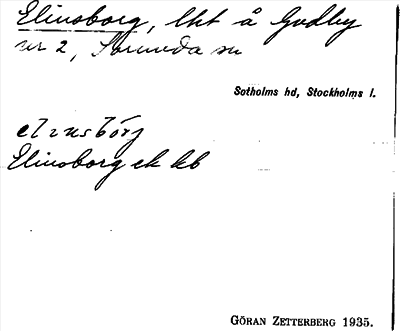 Elinsborg, lht å Godby
nr 2, Sorunda sn
Sotholms hd, Stockholms l.
elinsbörj
Elinsborg ek kb
GÖRAN ZETTERBERG 1935.